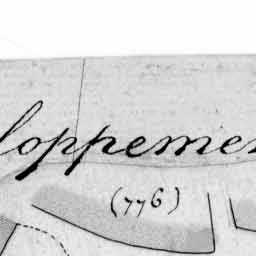 loppemen
(776)